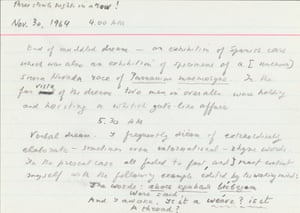 Three strands nights in a row!
Nov. 30, 1964 4.00 AM
End of muddled dream — an exhibition of Spanish
which was also an exhibition of specimens of a [unknown]
Sierra Nevada race of Parnassius mnemosyne. In the
far vista of the dream two men in overalls were holding
and hoisting a whitish gate-like affair
5.30 AM
Verbal dream. I frequently dream of extraordinarily
elaborate — sometimes even international — rhyme words.
In the present case all faded so fast, and I must content
myself with the following example edited by the waking mind:
The words:
were said.
And I awoke: Is it a weave? is it
A thread?